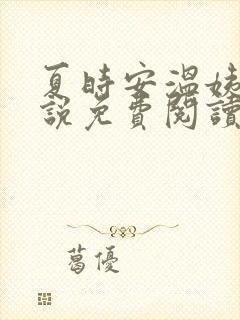 夏時安溫姝
說免費閱讀
葛優